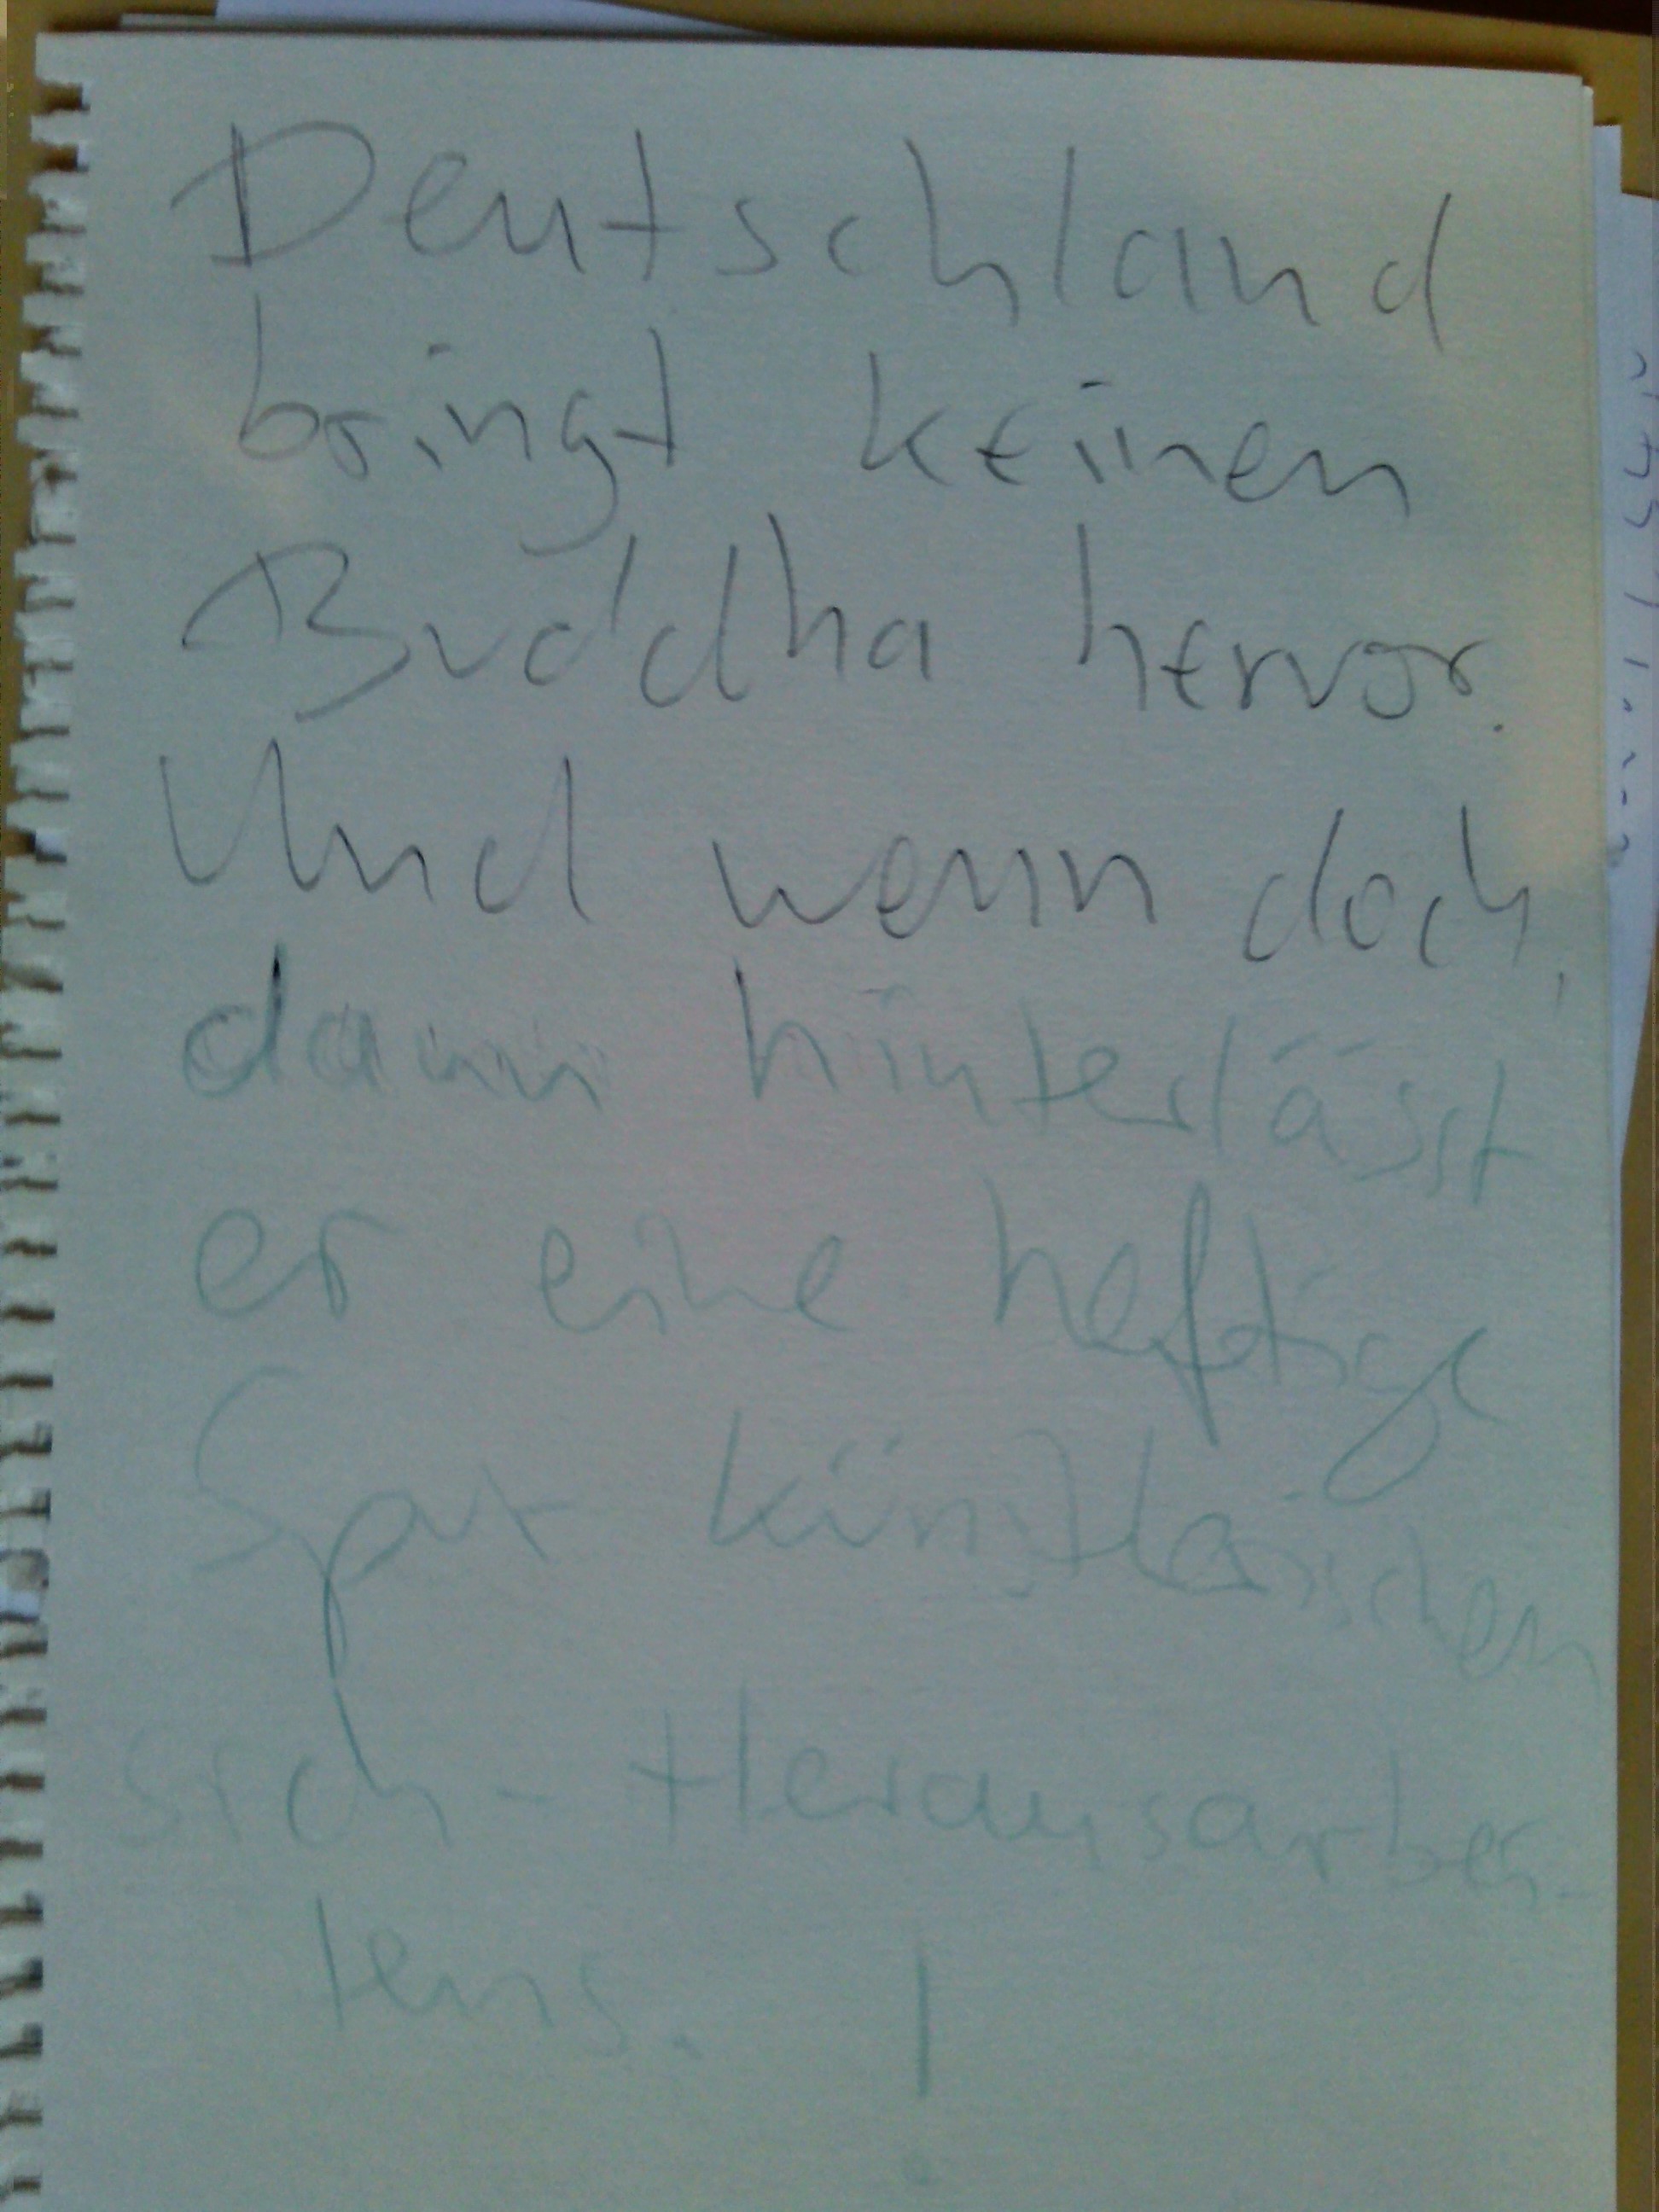 Deutschland
bringt keinen
Buddha hervor.
Und wenn doch,
dann hinterlässt
er eine heftige
Spur künstlerischen
sich-Herausarbei-
tens. !